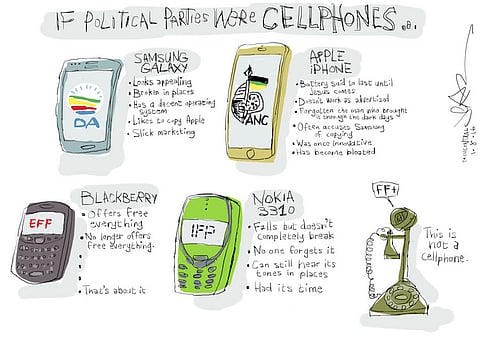 IF POLITICAL PARTIES WERE CELLPHONES...
SAMSUNG
GALAXY
• Looks appealing
• Broken in places
• Has a decent operating
system
• Likes to copy Apple
• Slick marketing
DA
APPLE
iPHONE
• Battery said to last until
Jesus comes
• Doesn't work as advertised
• Forgotten the man who brought
it through the dark days
• Often accuses Samsung
of copying
• Was once innovative
• Has become bloated
ANC
BLACKBERRY
• Offers free
everything
• No longer offers
free everything.
•
•
•
• That's about it
EFF
NOKIA
3310
• Falls but doesn't
completely break
• No one forgets it
• Can still hear its
tones in places
• Had its time
IFP
FF+
This is
not a
cellphone.